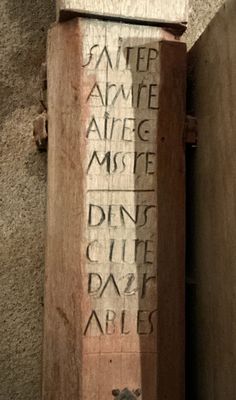 SAITEP
ARMRE
AIRE·C
MSSRE
DENS
CIIRE
DAZR
ABLES